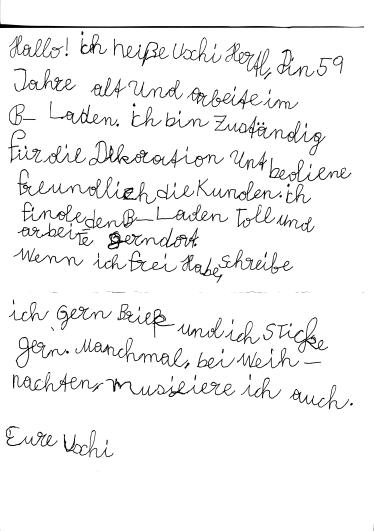 Hallo! ich heiße Uschi Hertl, Bin 59
Jahre alt und arbeite im
B- Laden. ich bin Zuständig
für die Dekoration Unt bediene
freundlich die Kunden. ich
finde den B- Laden Toll und
arbeite gern dort.
Wenn ich frei Habe, schreibe
ich Gern Briefe und ich sticke
gern. Manchmal, bei Weih-
nachten, musiziere ich auch.
Eure Uschi